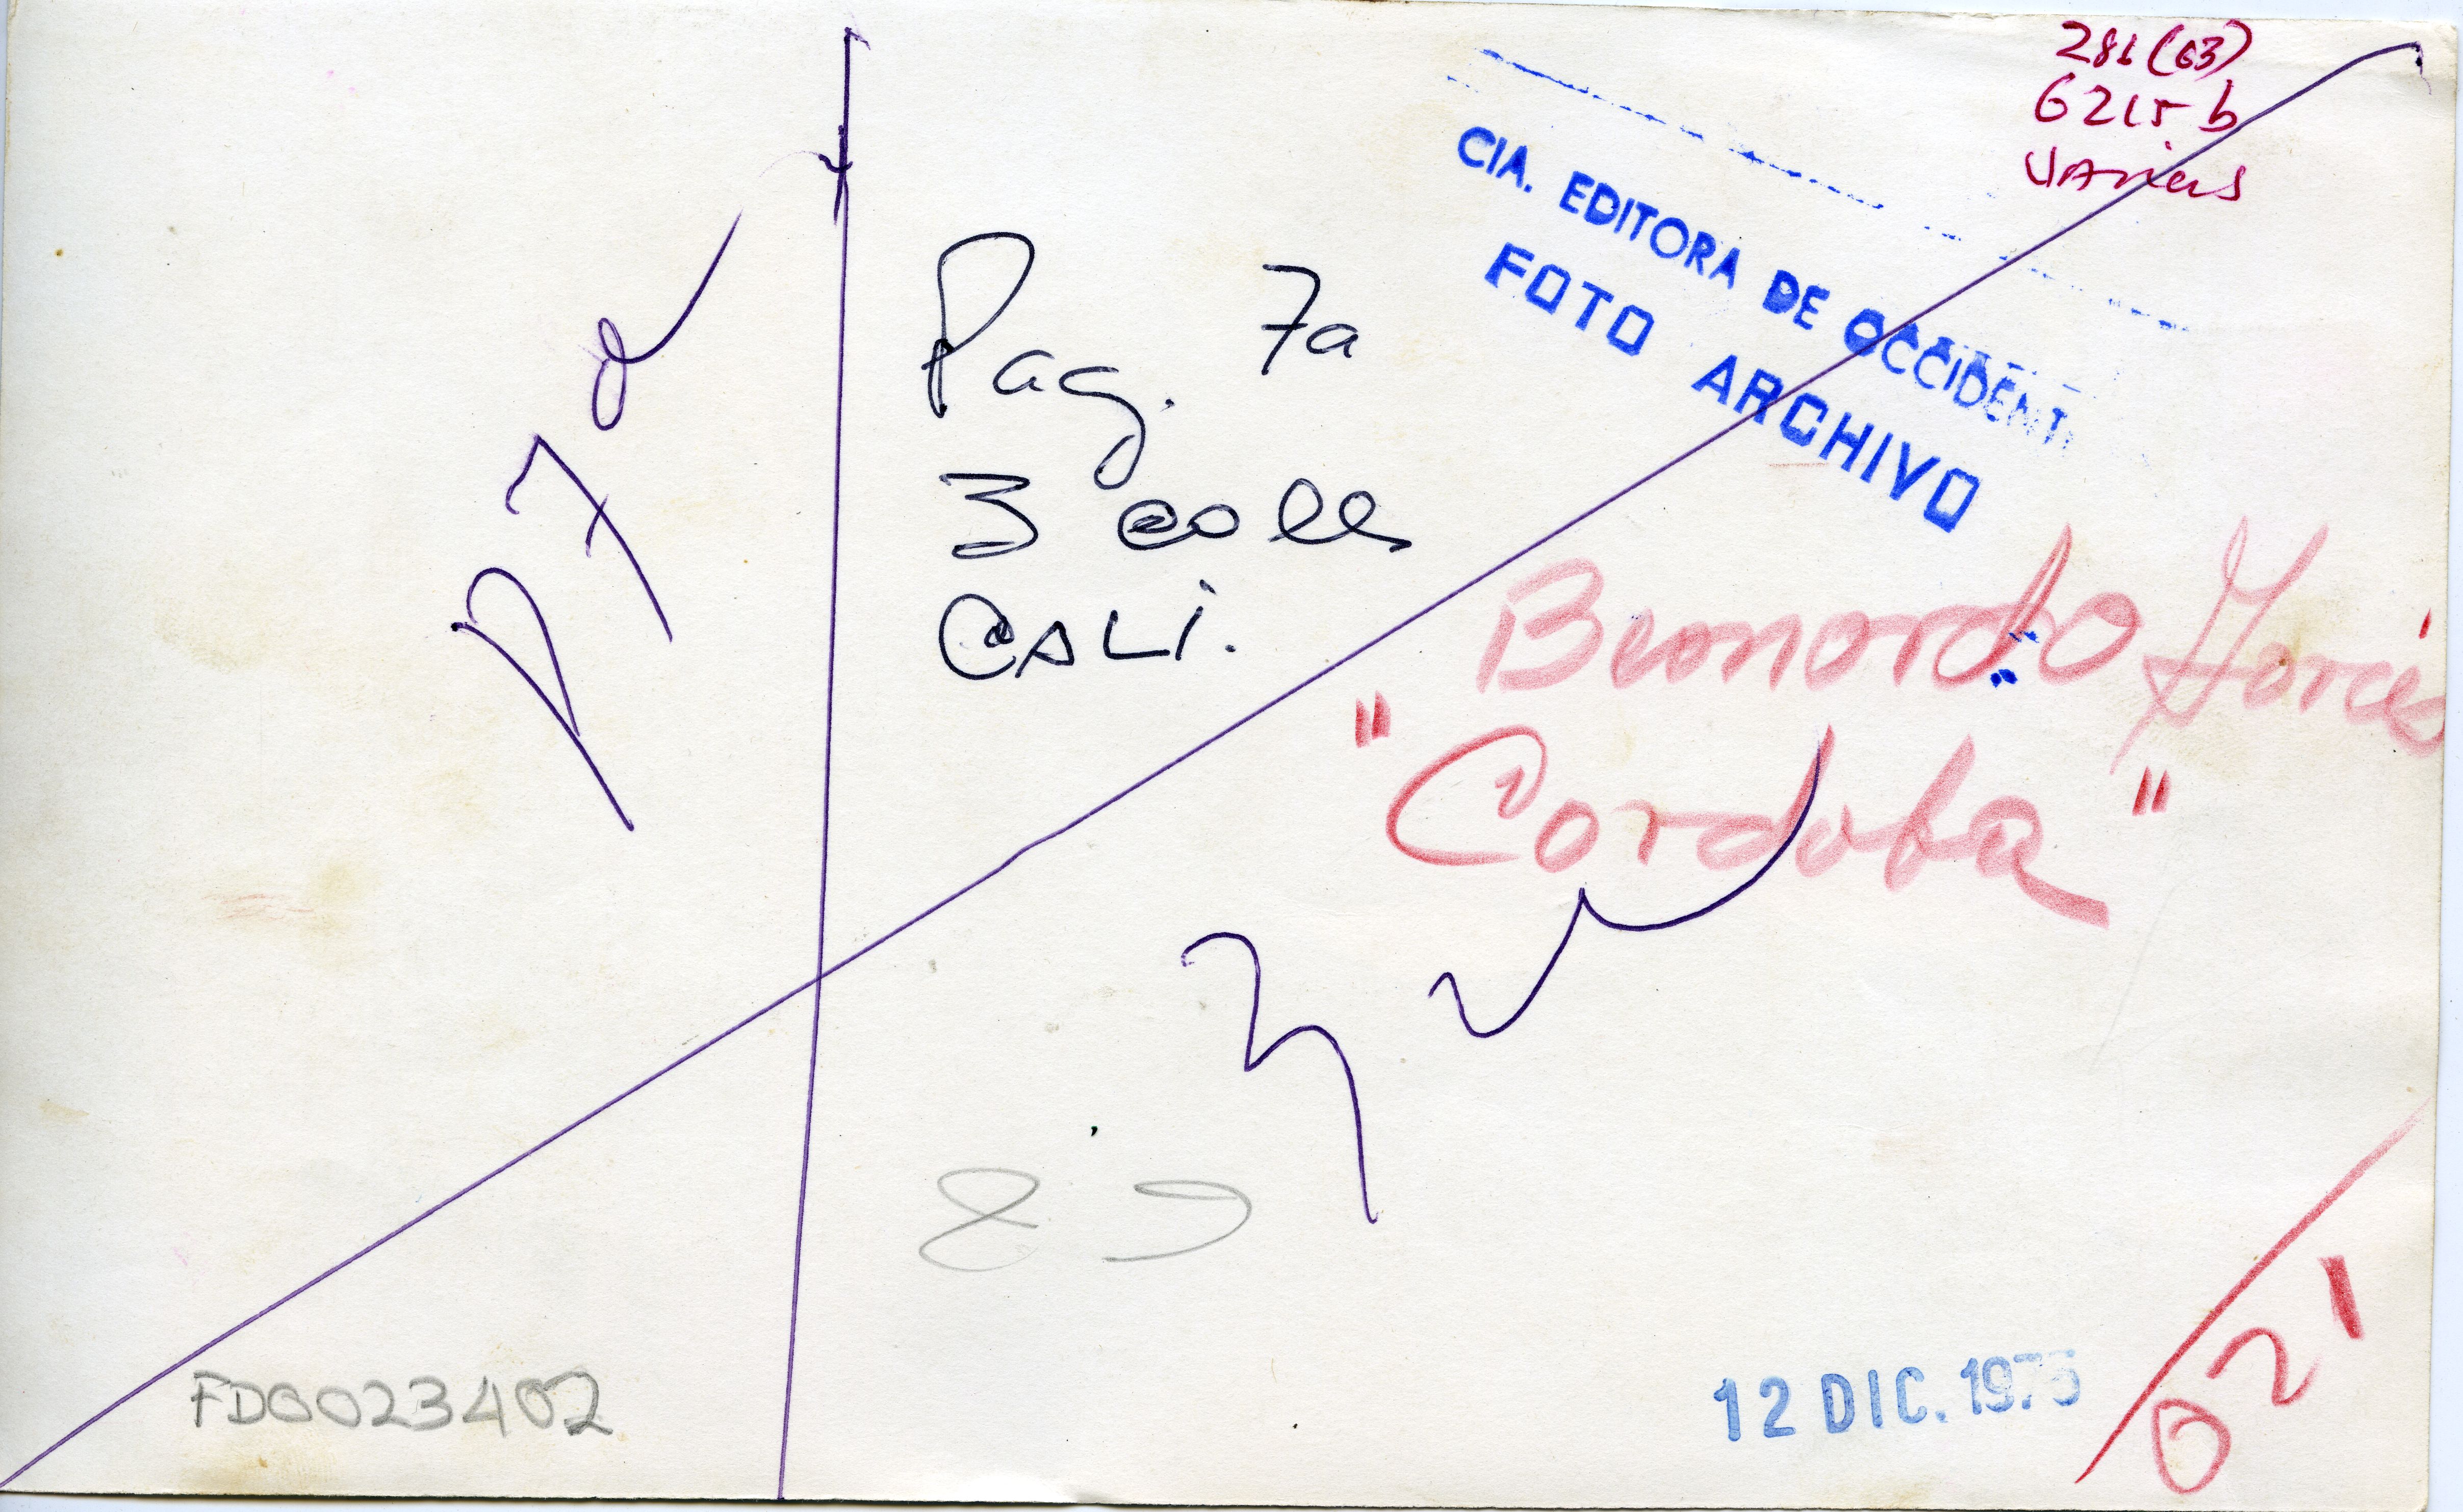 281(63)
6215 b
VARIAS
CIA. EDITORA DE OCCIDENT
FOTO ARCHIVO
P 7a
Pag. 7a
3 cols
CALI.
Bernardo
"Cordoba"
FD0023402
12 DIC. 1975
021